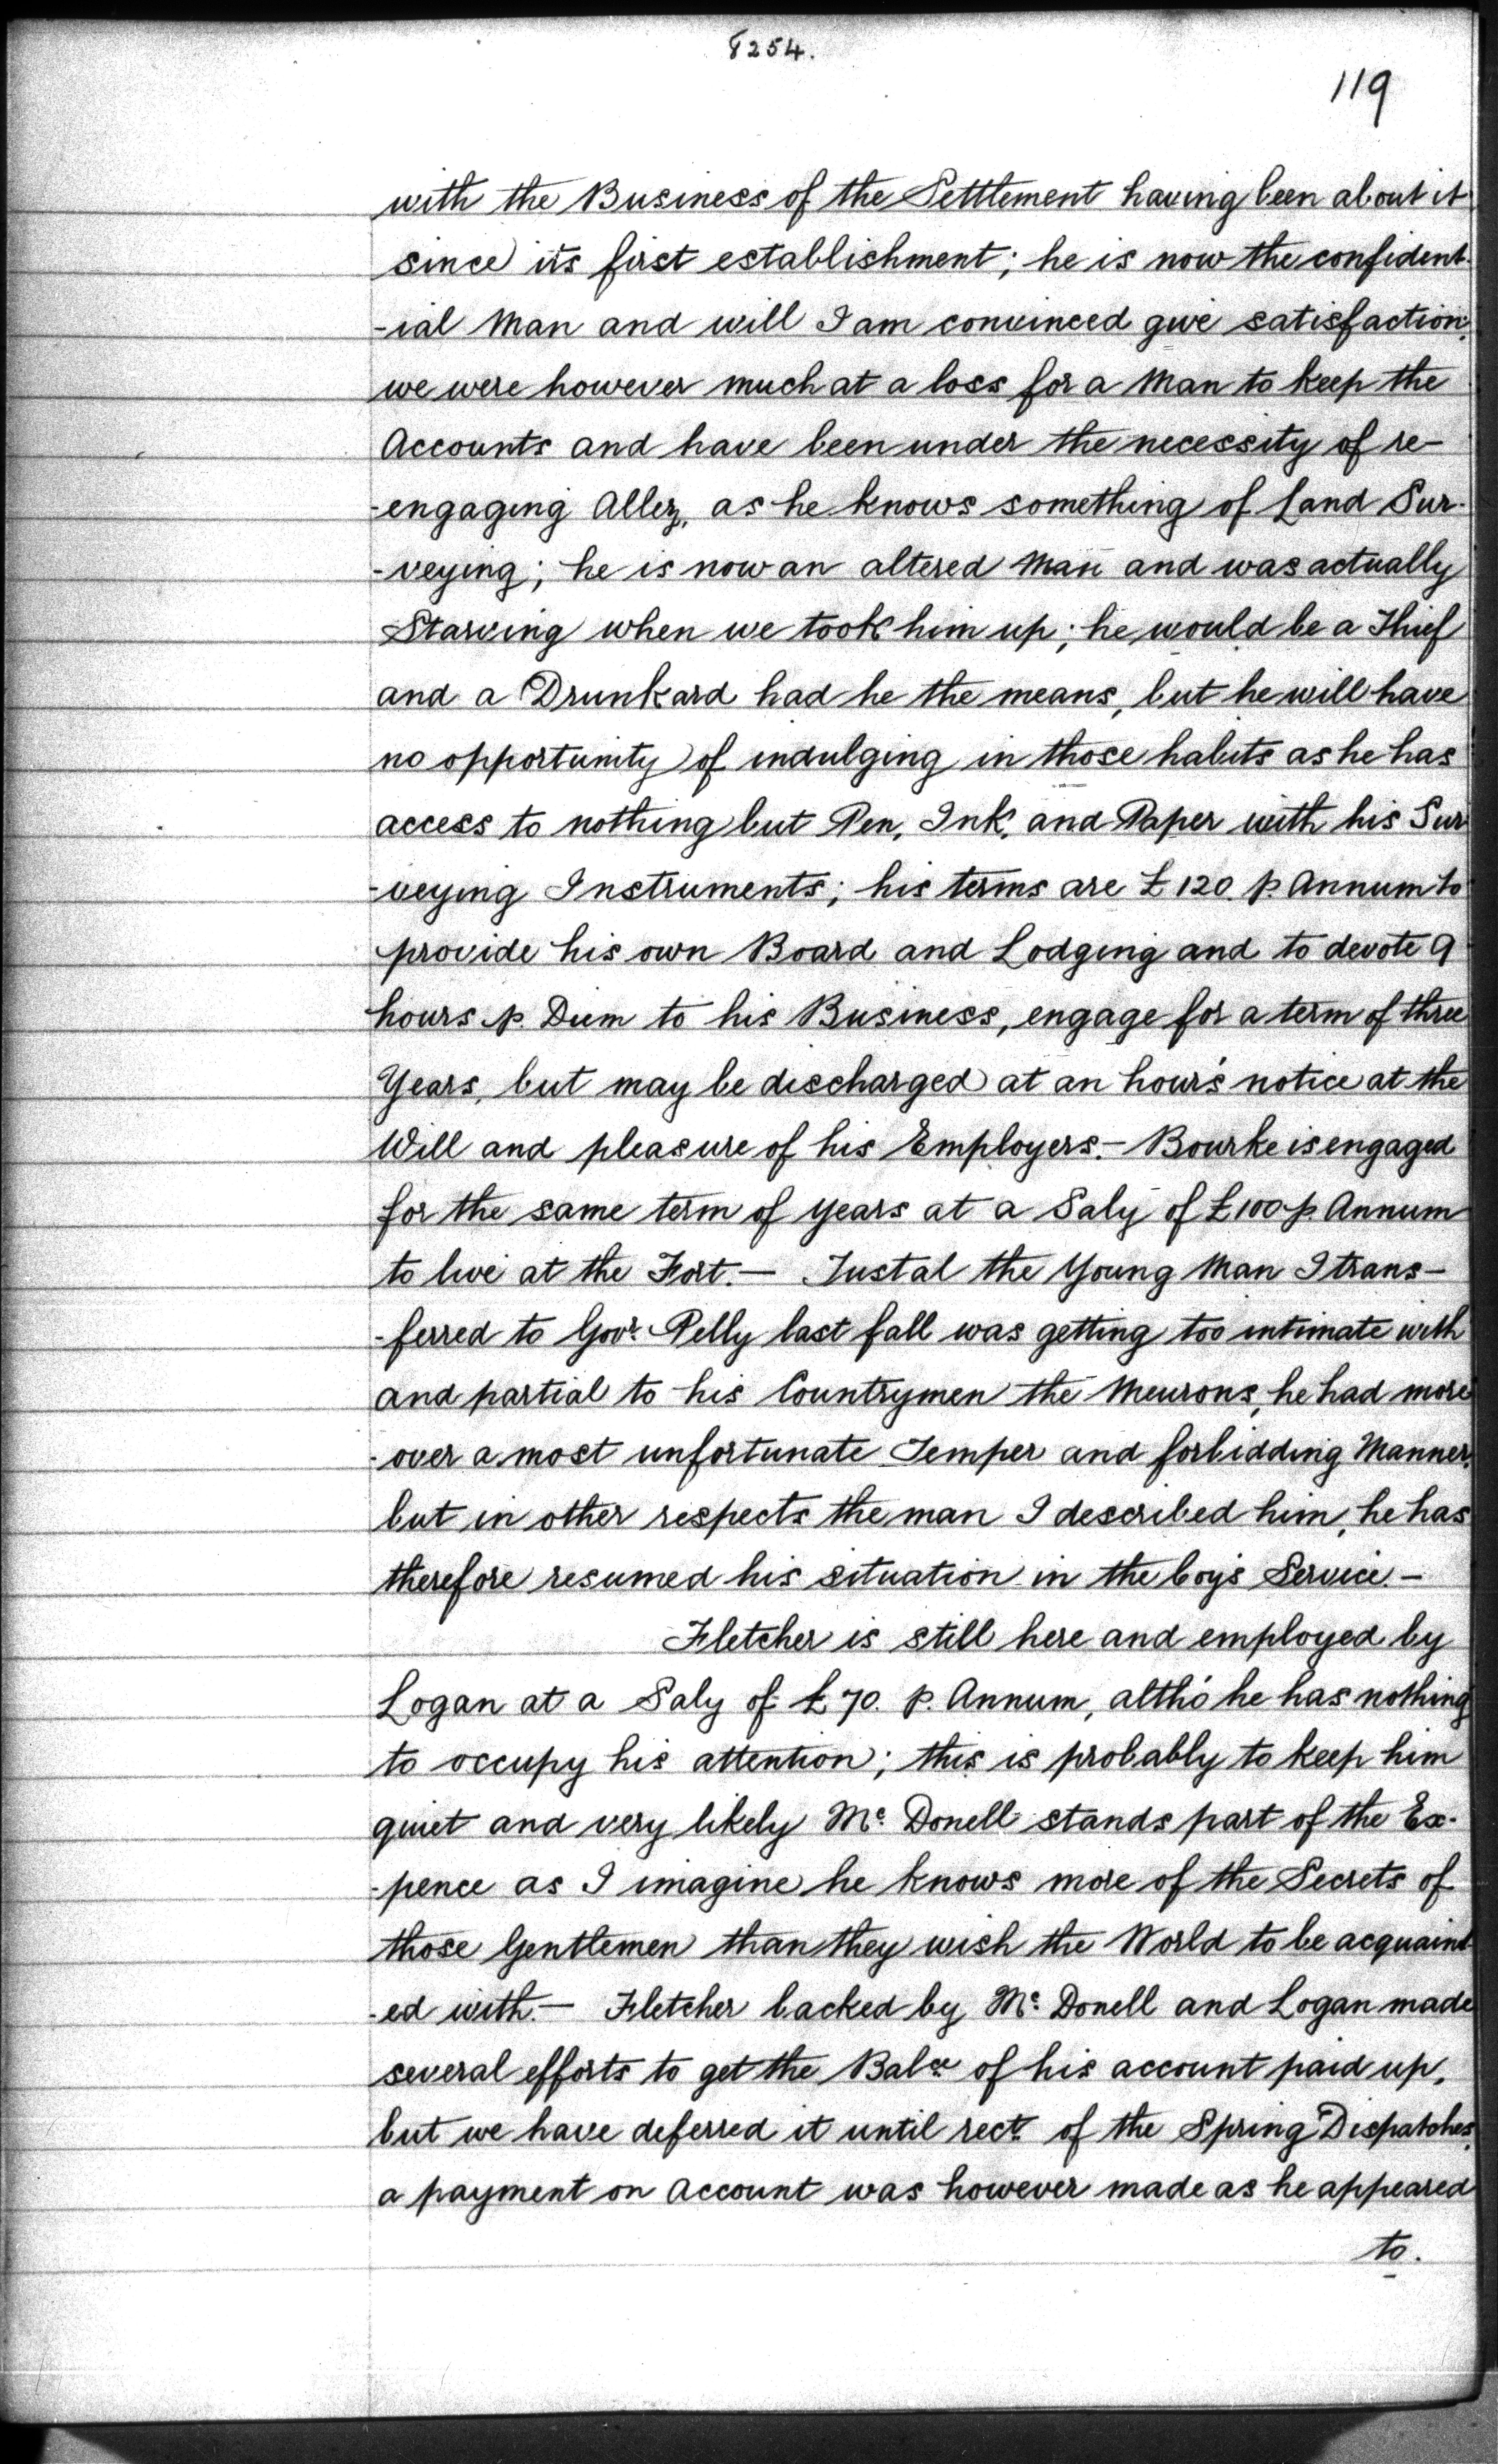 8254.
119
with the Business of the Settlement having been about it
since its first establishment; he is now the confident-
-ial Man and will I am convinced give satisfaction;
we were however much at a loss for a Man to keep the
Accounts and have been under the necessity of re-
-engaging Allez, as he knows something of Land Sur-
-veying; he is now an altered Man and was actually
Starving when we took him up; he would be a Thief
and a Drunkard had he the means, but he will have
no opportunity of indulging in those habits as he has
access to nothing but Pen, Ink, and Paper with his Sur-
-veying Instruments; his terms are £120. p. Annum to
provide his own Board and Lodging and to devote 9
hours p. Diem to his Business, engage for a term of three
Years, but may be discharged at an hour's notice at the
Will and pleasure of his Employers.- Bourke is engaged
for the same term of years at a Saly of £100 p. Annum
to live at the Fort.- Tustal the Young Man I trans-
-ferred to Govr. Pelly last fall was getting too intimate with
and partial to his Countrymen the Meurons, he had more
-over a most unfortunate Temper and forbidding Manner,
but in other respects the man I described him, he has
therefore resumed his situation in the Coy's Service.-
Fletcher is still here and employed by
Logan at a Saly of £70. p. Annum, altho' he has nothing
to occupy his attention; this is probably to keep him
quiet and very likely Mc. Donell stands part of the Ex-
-pence as I imagine he knows more of the Secrets of
those Gentlemen than they wish the World to be acquaint-
-ed with.- Fletcher backed by Mc. Donell and Logan made
several efforts to get the Balce. of his account paid up,
but we have deferred it until rect. of the Spring Dispatches,
a payment on Account was however made as he appeared
to.